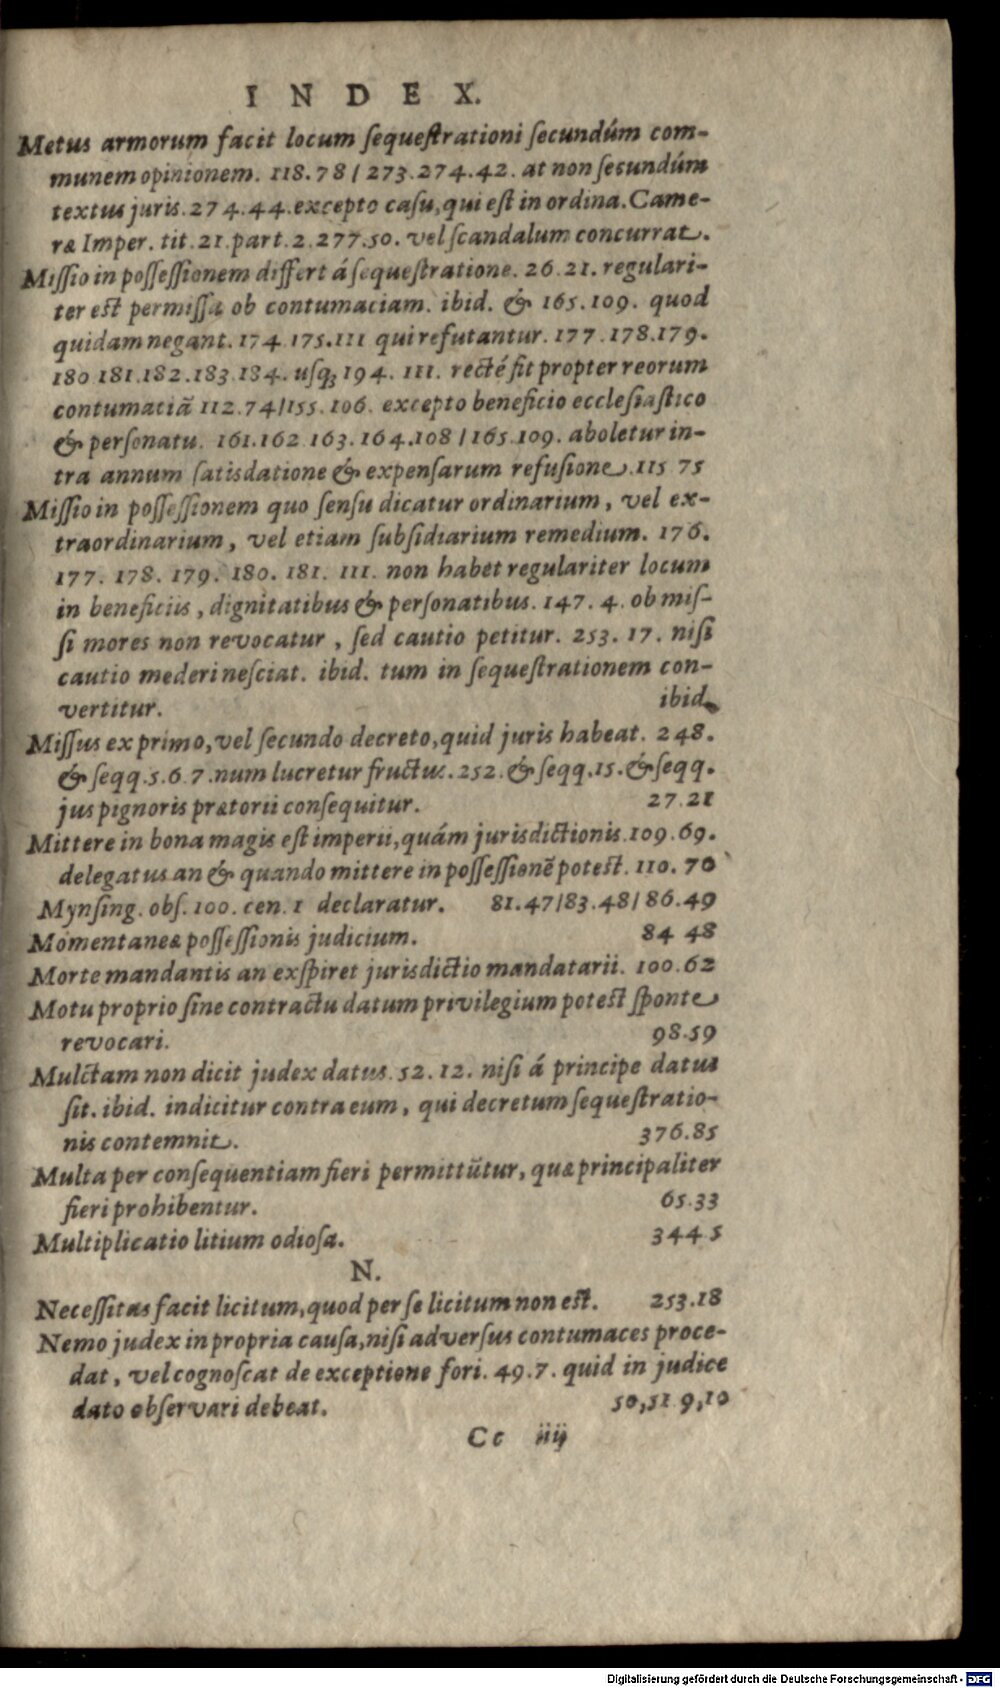 INDEX.
Metus armorum facit locum ſequeſtrationi ſecundúm com-
munem opinionem. 118.78/273.274.42. at non ſecundúm
textus juris.274.44.excepto caſu,qui eſt in ordina.Came-
ræ Imper. tit.21.part.2.277.50. vel ſcandalum concurrat.
Miſſio in poſſeſſionem differt á ſequeſtratione. 26.21. regulari-
ter eſt permiſſa ob contumaciam. ibid. & 165.109. quod
quidam negant.174.175.111 qui refutantur.177.178.179.
180 181.182.183.184. uſq; 194. 111. recté fit propter reorum
contumaciā 112.74/155.106. excepto beneficio eccleſiaſtico
& perſonatu. 161.162 163.164.108/165.109. aboletur in-
tra annum ſatisdatione & expenſarum refuſione.115 75
Miſſio in poſſeſſionem quo ſenſu dicatur ordinarium, vel ex-
traordinarium, vel etiam ſubſidiarium remedium. 176.
177. 178. 179. 180. 181. 111. non habet regulariter locum
in beneficiis, dignitatibus & perſonatibus. 147. 4. ob miſ-
ſi mores non revocatur, ſed cautio petitur. 253. 17. niſi
cautio mederi neſciat. ibid. tum in ſequeſtrationem con-
vertitur. ibid.
Miſſus ex primo,vel ſecundo decreto,quid juris habeat. 248.
& ſeqq.5.6.7.num lucretur fructus.252.& ſeqq.15.& ſeqq.
jus pignoris prætorii conſequitur. 27.21
Mittere in bona magis eſt imperii,quám jurisdictionis.109.69.
delegatus an & quando mittere in poſſeſſionē poteſt. 110. 70
Mynſing. obſ.100. cen. 1 declaratur. 81.47/83.48/86.49
Momentaneæ poſſeſſionis judicium. 84 48
Morte mandantis an exſpiret jurisdictio mandatarii. 100.62
Motu proprio ſine contractu datum privilegium poteſt ſponte
revocari. 98.59
Mulctam non dicit judex datus.52.12. niſi á principe datus
ſit. ibid. indicitur contra eum, qui decretum ſequeſtratio-
nis contemnit. 376.85
Multa per conſequentiam fieri permittūtur, quæ principaliter
fieri prohibentur. 65.33
Multiplicatio litium odioſa. 344 5
N.
Neceſſitas facit licitum,quod per ſe licitum non eſt. 253.18
Nemo judex in propria cauſa,niſi adverſus contumaces proce-
dat, vel cognoſcat de exceptione fori. 49.7. quid in judice
dato obſervari debeat. 50,51 9,10
Cc iiij
Digitalisierung gefördert durch die Deutsche Forschungsgemeinschaft - DFG